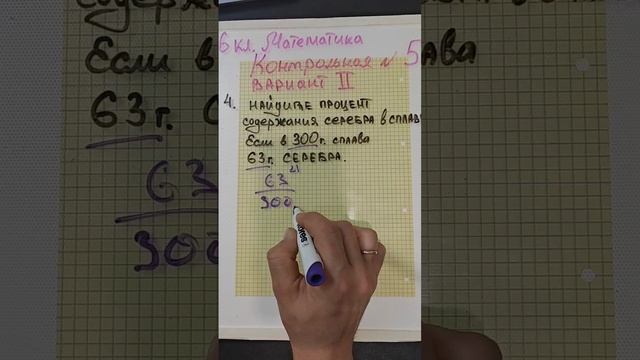 6 кл. Математика
Контрольная № 5
ВАРИАНТ II
4. НАЙДИТЕ ПРОЦЕНТ
содержания СЕРЕБРА в сплав
Если в 300 г. сплава
63 г. СЕРЕБРА.
63 21
300